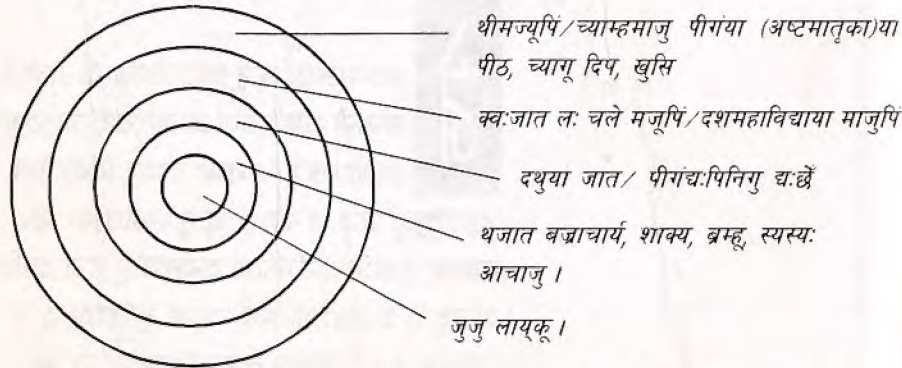 थीमज्यूपिं/च्याम्हमाजु पीगंया (अष्टमातृका)या
पीठ, च्यागू दिप, खुसि
क्वःजात लः चले मजूपिं/दशमहाविद्याया माजुपिं
दथुया जात/ पीगंद्यःपिनिगु द्यःछेँ
थजात बज्राचार्य, शाक्य, ब्रम्हू, स्यस्यः
आचाजु ।
जुजु लाय्कू ।